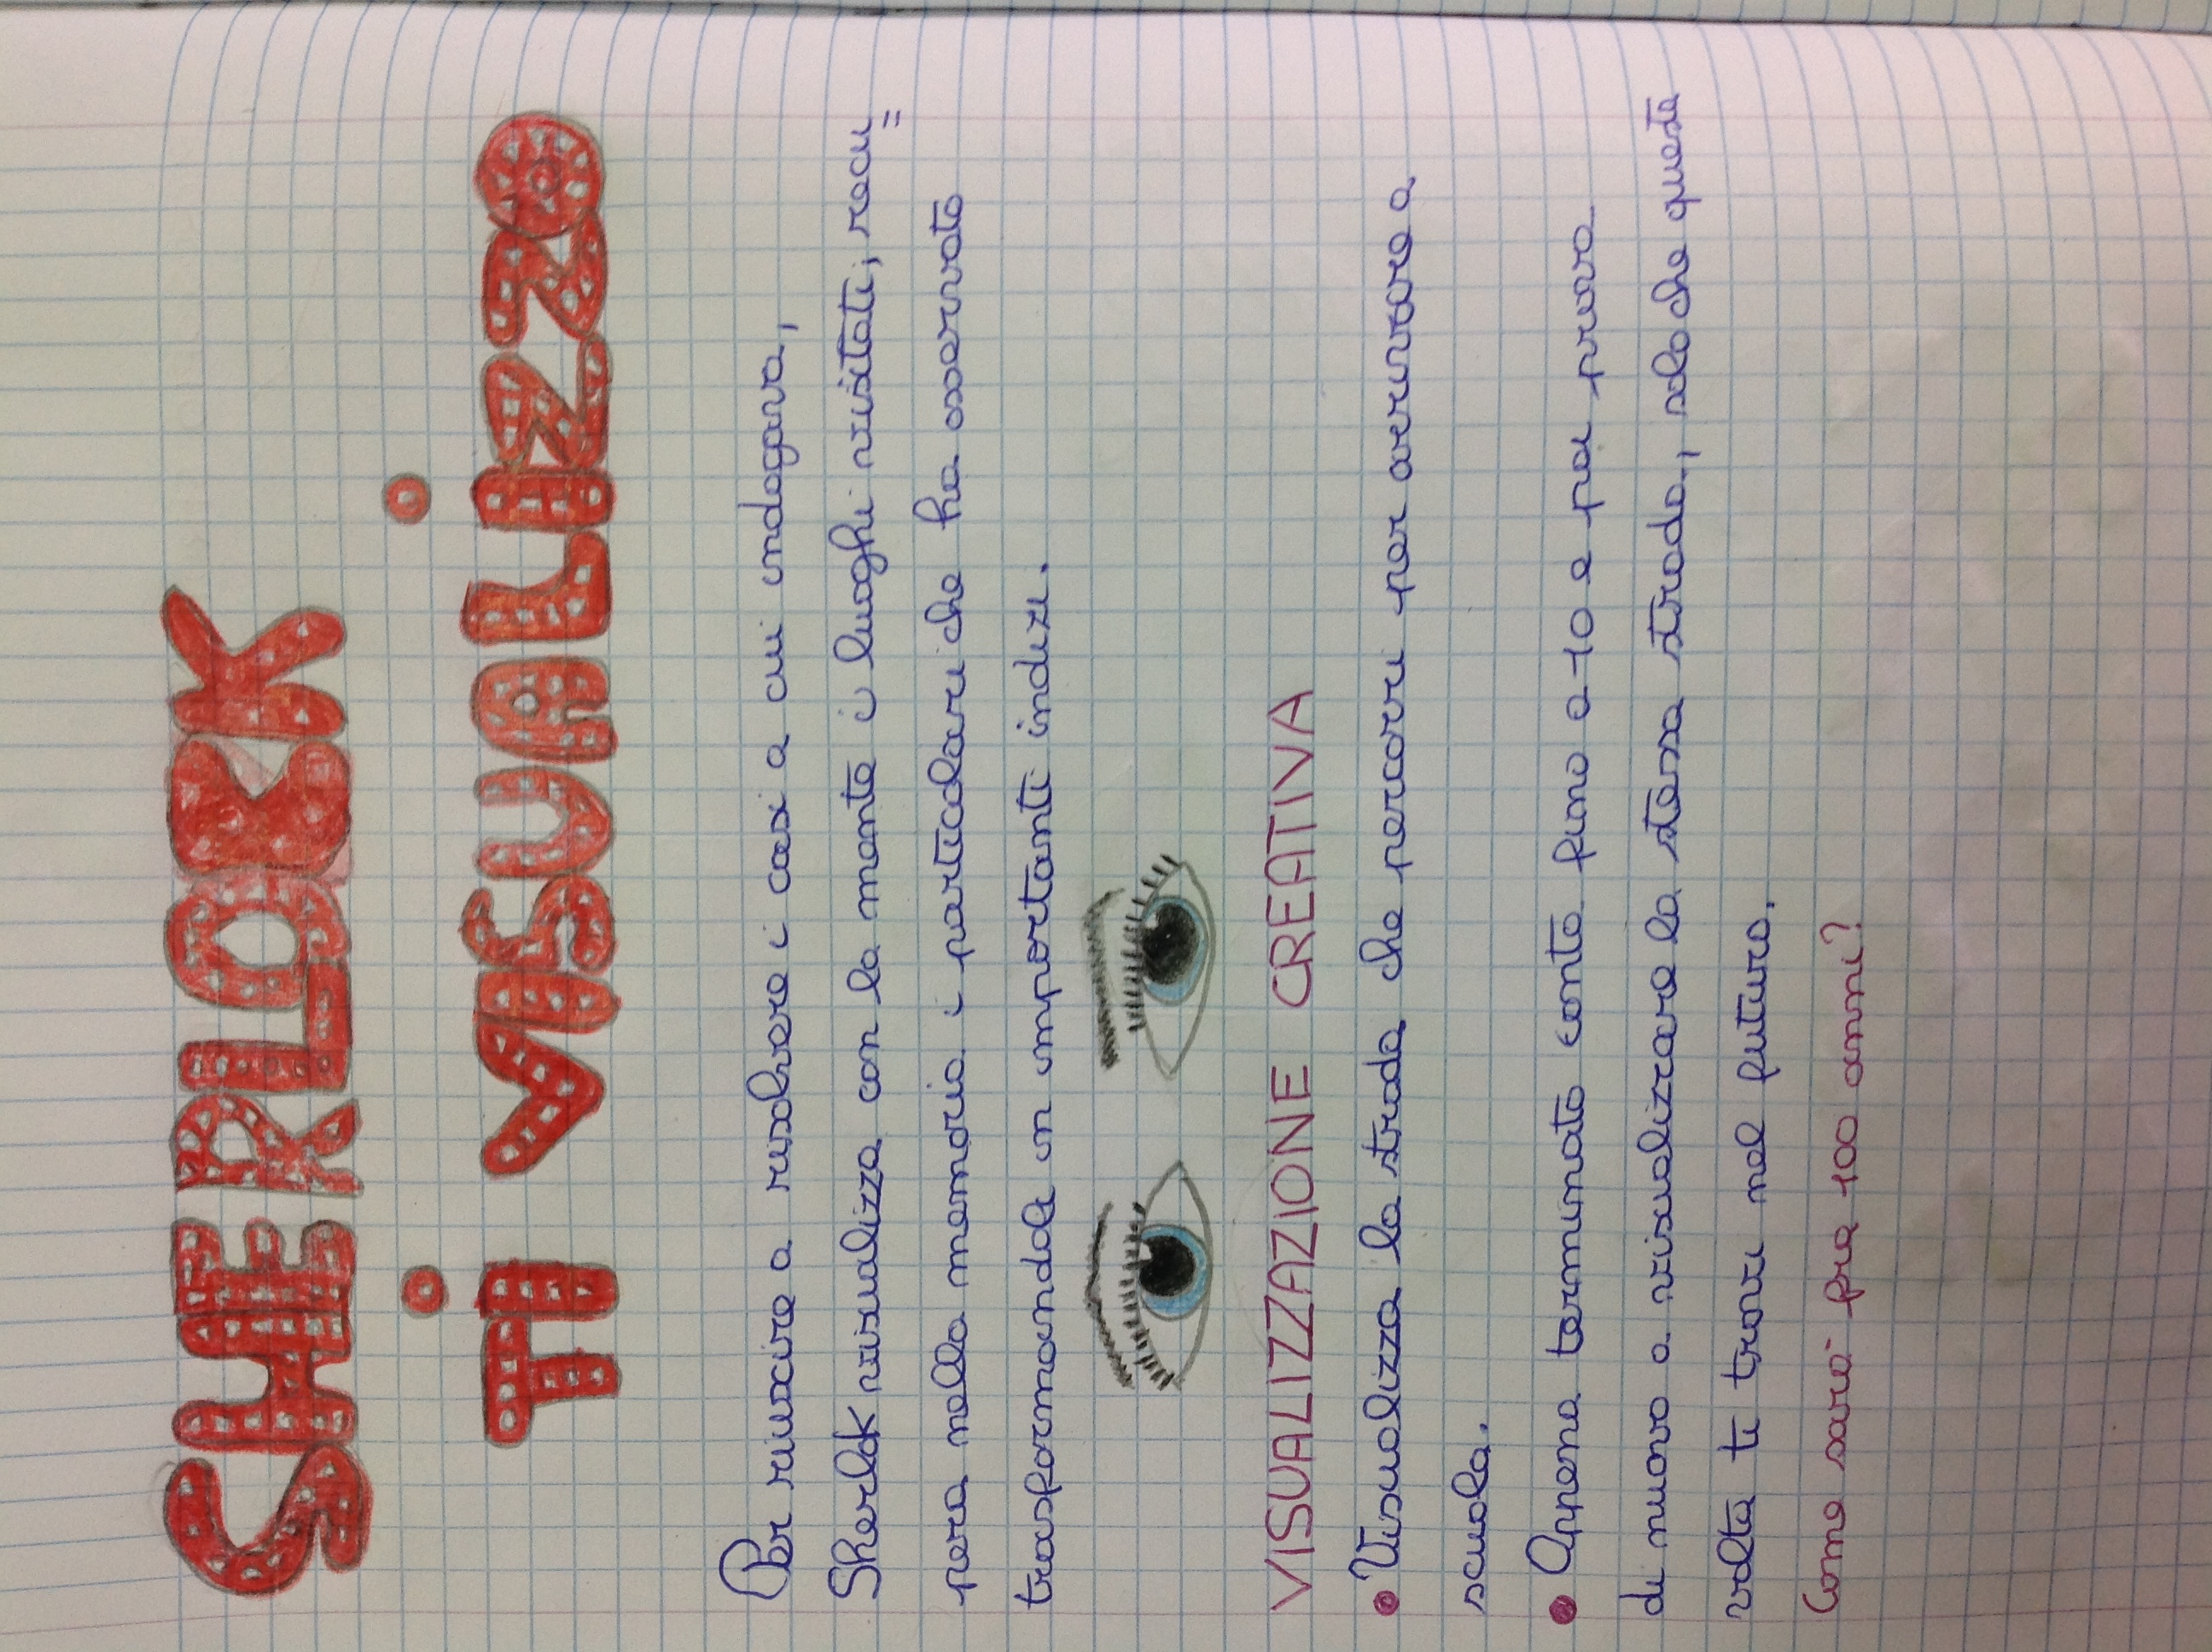 SHERLOCK
TI VISUALIZZO
Per riuscire a risolvere i casi a cui indagava,
Sherlok visualizza con la mente i luoghi visitati, recu=
pera nella memoria i particolari che ha osservato
trasformandoli in importanti indizi.
VISUALIZZAZIONE CREATIVA
• Visualizza la strada che percorri per arrivare a
scuola.
• Appena terminato conta fino a 10 e poi prova
di nuovo a visualizzare la stessa strada, solo che questa
volta ti trovi nel futuro.
Come sarà fra 100 anni?